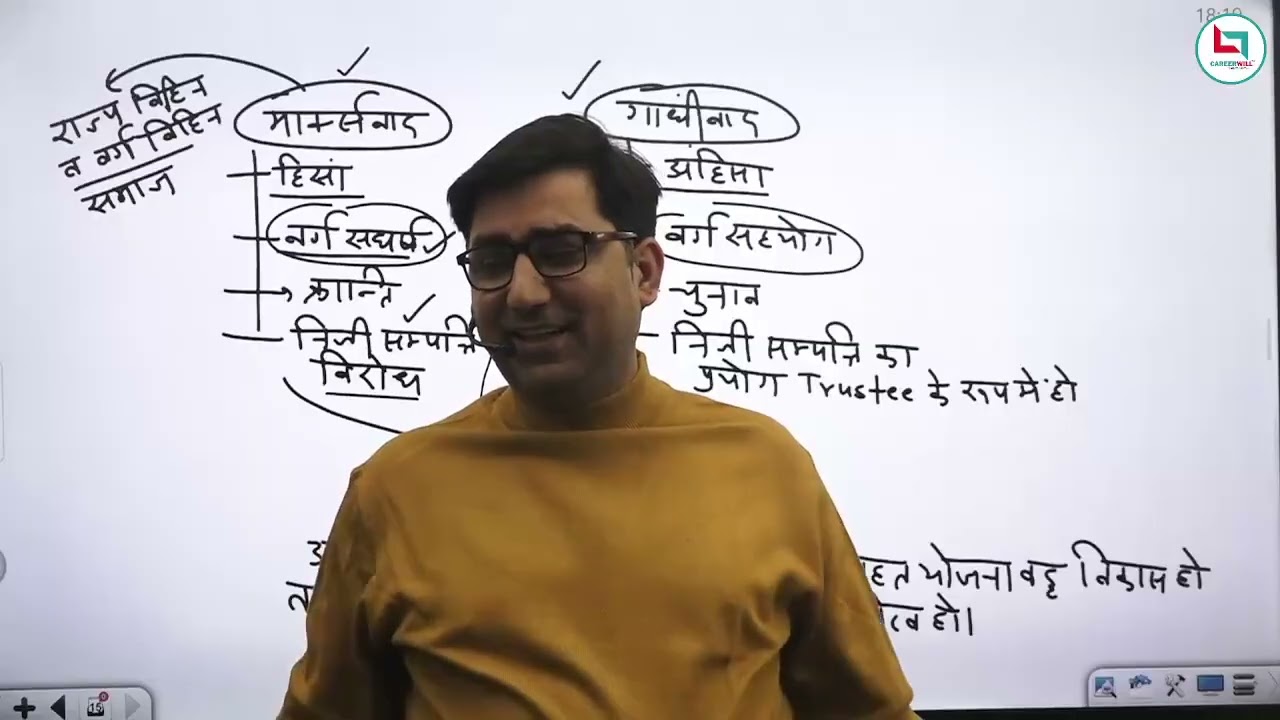 18:19
CAREERWILL
राज्य विहिन
व वर्ग विहिन
समाज
मार्क्सवाद
हिसां
वर्ग सघर्ष
क्रान्ति
निजी सम्पत्ति
विरोध
गाधींवाद
अंहिसा
वर्ग सहयोग
चुनाव
निजी सम्पत्ति का
प्रयोग Trustee के रूप में हो
योजनाबद्ध विकास हो
हो।
15